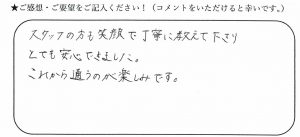 ★ご感想・ご要望をご記入ください！（コメントをいただけると幸いです。）
スタッフの方も笑顔で丁寧に教えて下さり
とても安心できました。
これから通うのが楽しみです。